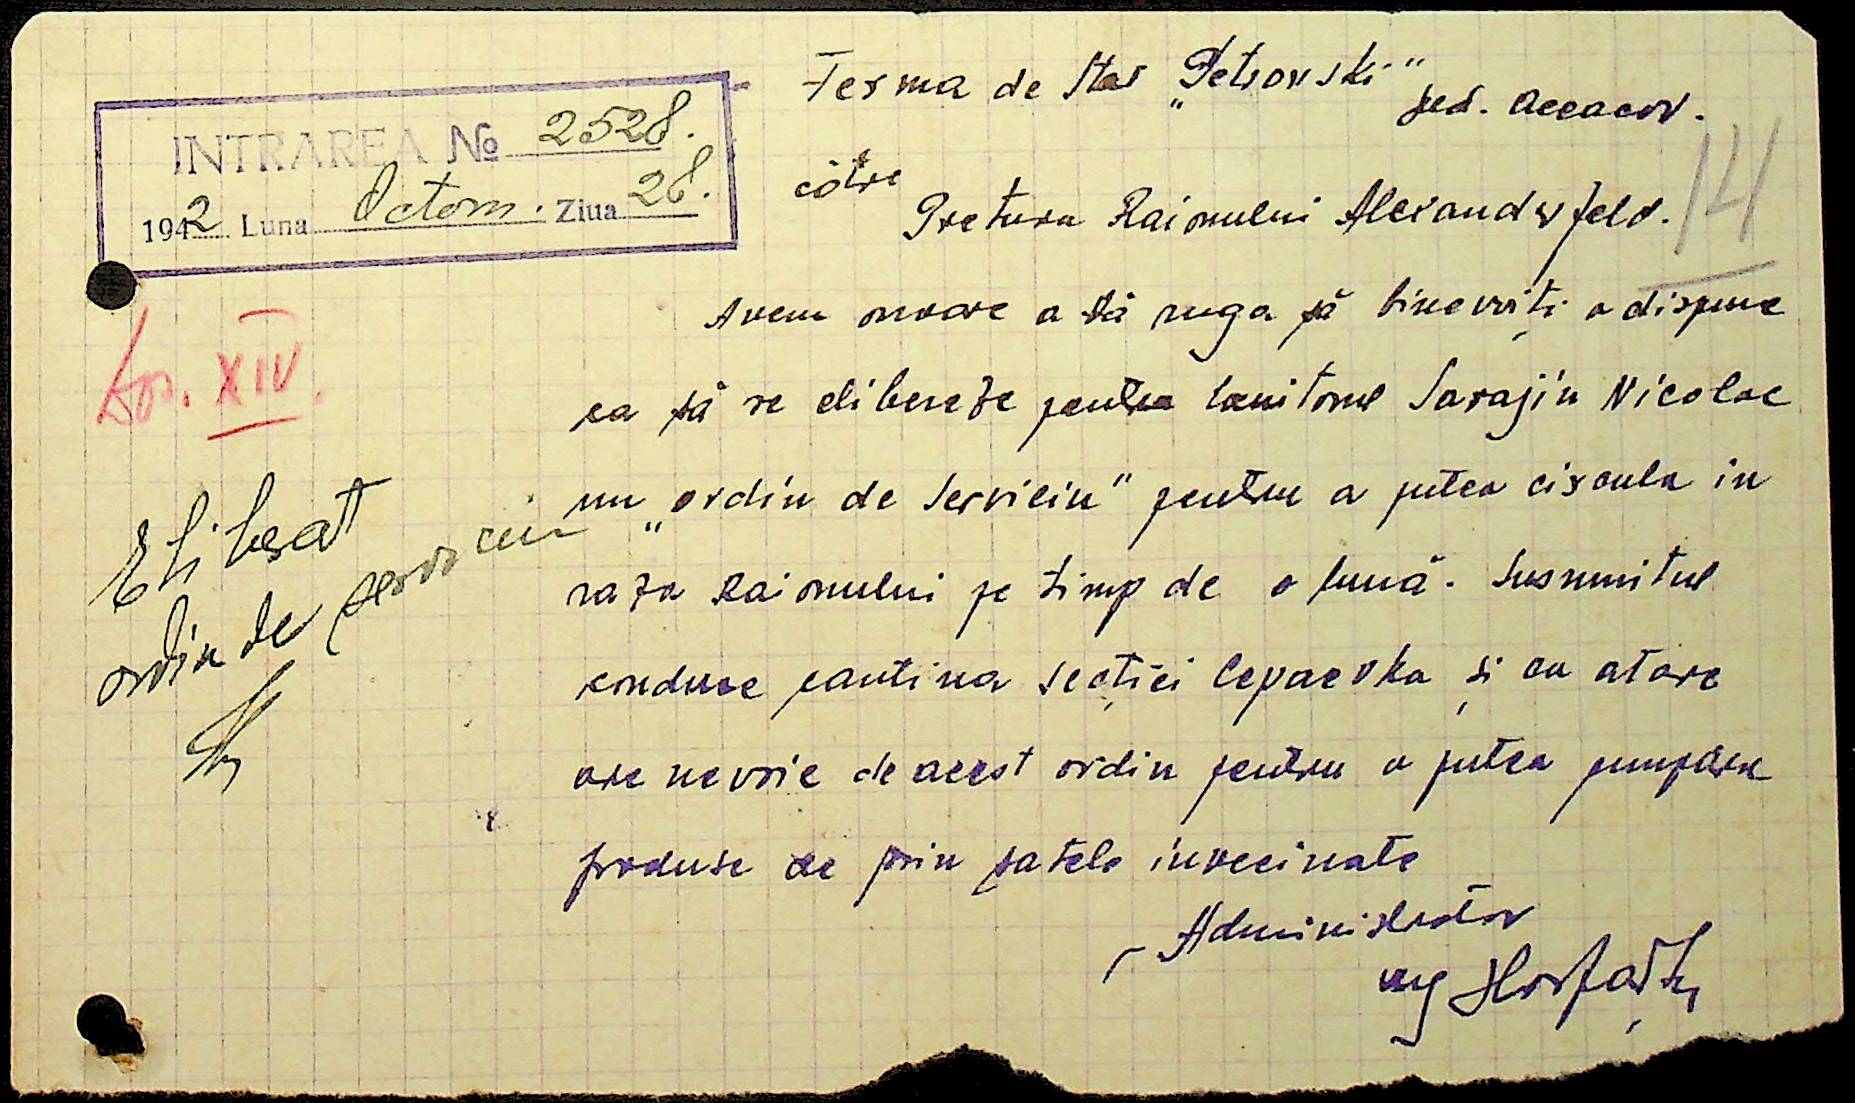 Ferma de Stat „Petrovski”
jud. Oceacov.
INTRAREA No 2528.
1942 Luna Octom. Ziua 28.
către
Pretura Raionului Alexanderfeld.
14
Avem onoare a vă ruga să binevoiți a dispune
ca să se elibereze pentru Sarajin Nicolae
un „ordin de serviciu” pentru a putea circula in
raza Raionului pe timp de o lună. Susnumitul
conduce cantina secției Cepaevka și ca atare
are nevoie de acest ordin pentru a putea cumpăra
produse de prin satele invecinate
Administrator
Dos. XIV.
Eliberat
ordin de serviciu